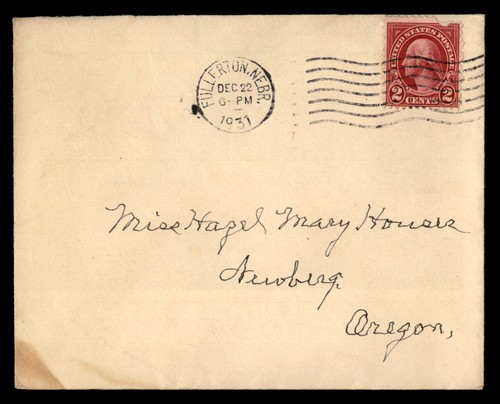 FULLERTON, NEBR.
DEC 22
6 - PM
1931
UNITED STATES POSTAGE
2 CENTS 2
Miss Hazel Mary Houser
Newberg.
Oregon,